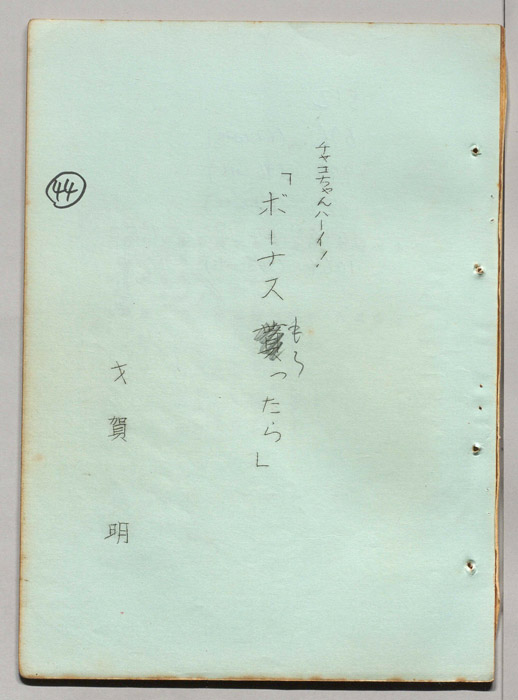 チャコちゃんハーイ!
「ボーナスもらったら」
44
才賀 明